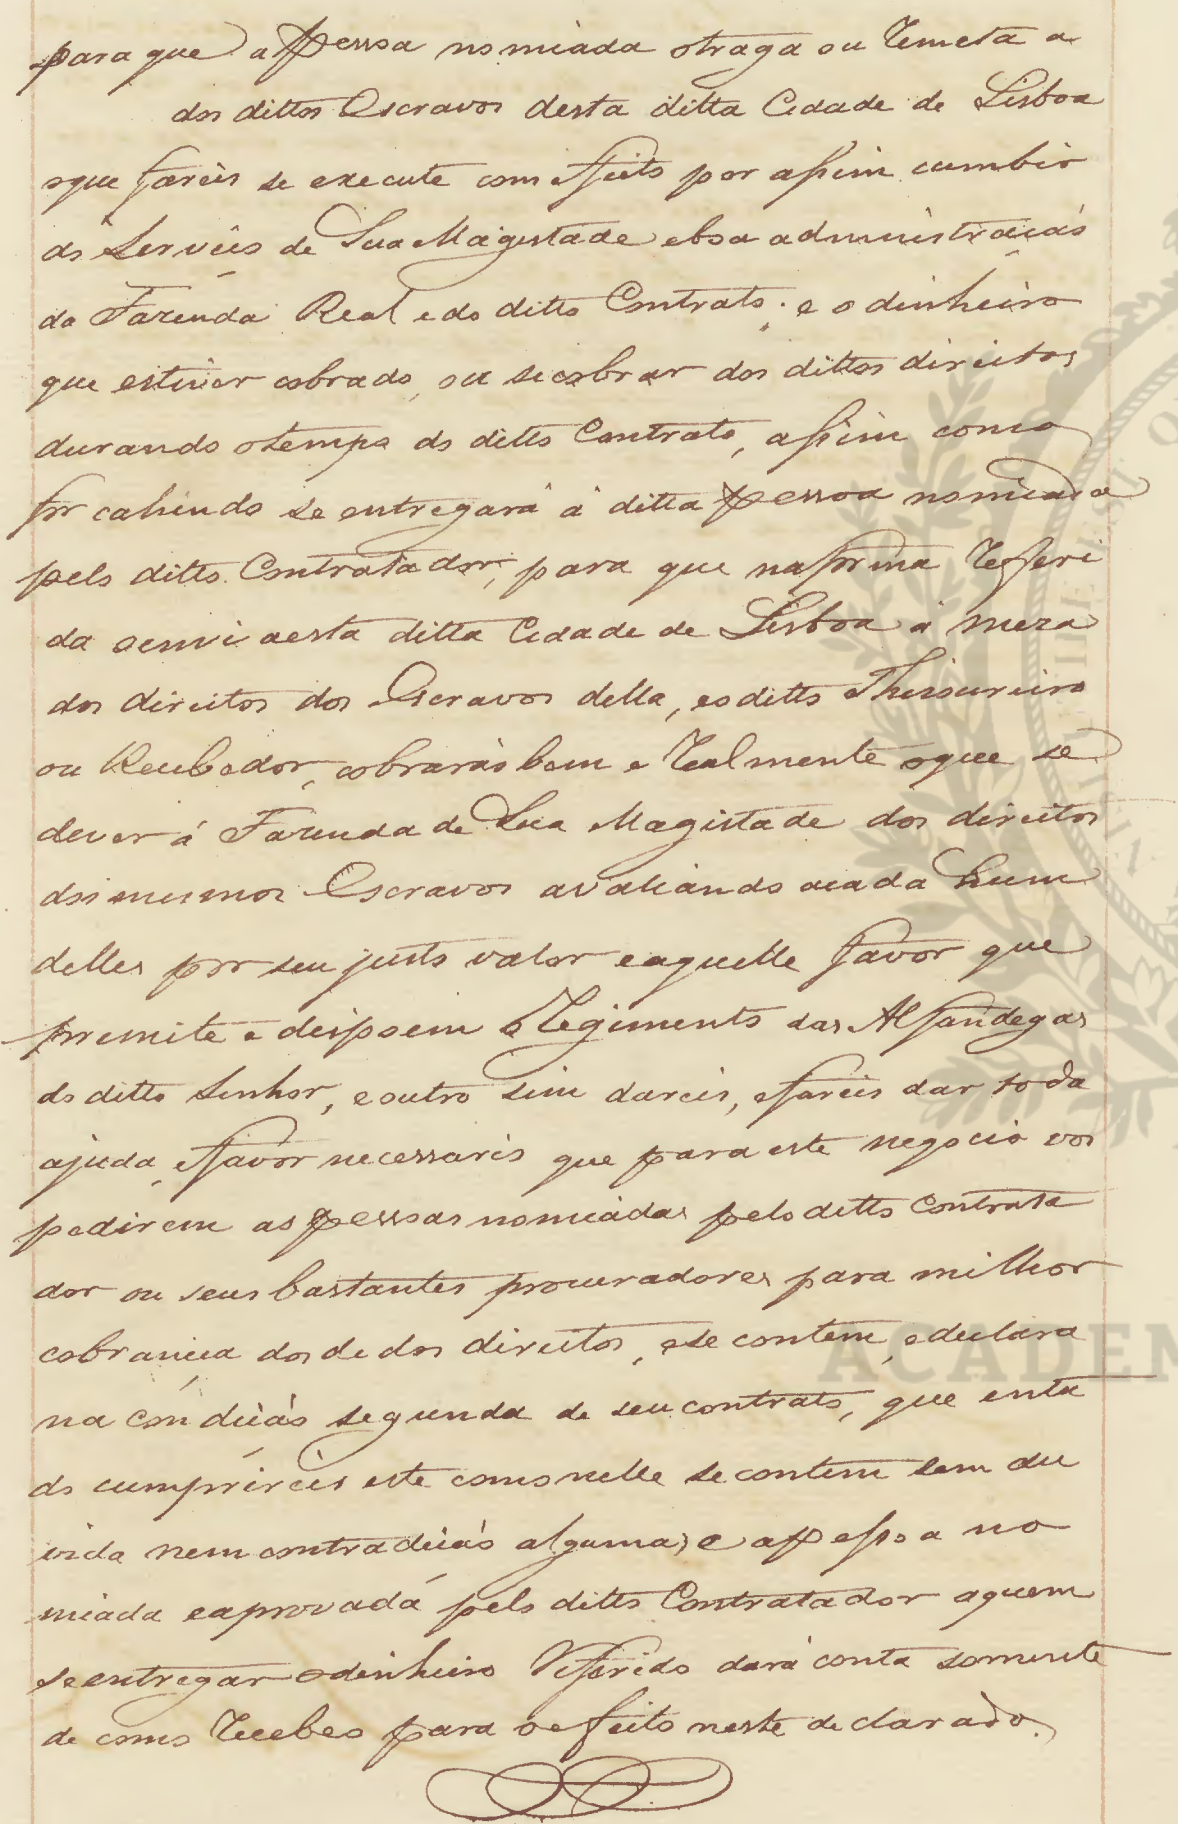 para que a Pessoa nomiada otraga ou Remeta a
dos dittos Escravos desta ditta Cidade de Lisboa
oque fareis se execute com effeito por assim cumbir
ao Serviço de Sua Magestade eboa administração
da Fazenda Real e do ditto Contrato; e o dinheiro
que estiver cobrado, ou se cobrar dos dittos direitos
durando otempo do ditto Contrato, assim como
for cahindo se entregará á ditta Pessoa nomiada
pelo ditto Contratador, para que na forma Referi
da oenvi aesta ditta Cidade de Lisboa á meza
dos direitos dos Escravos della, eoditto Thisoureiro
ou Recebedor, cobrarão bem e Realmente oque se
dever á Fazenda de Sua Magistade dos direitos
dosmesmos Escravos avaliando acada hum
delles por seu justo valor eaquelle favor que
premite e deispoem o Regimento das Alfandegas
do ditto Senhor, eoutro sim dareis, efareis dar toda
ajuda, efavor necessario que para este negocio vos
pedirem as pessoas nomiadas pelo ditto Contrata
dor ou seus bastantes procuradores para milhor
cobrancia dos de dos direitos, ese contem, edeclara
na Condição segunda de seu contrato, que enta
do cumprireis este como nelle se contem sem du
vida nem contradição alguma; e a pessoa no
miada eaprovada pelo ditto Contratador aquem
se entregar odinheiro Referido dará conta somente
de como Recebeo para oefeito neste declarado.
ACADEM